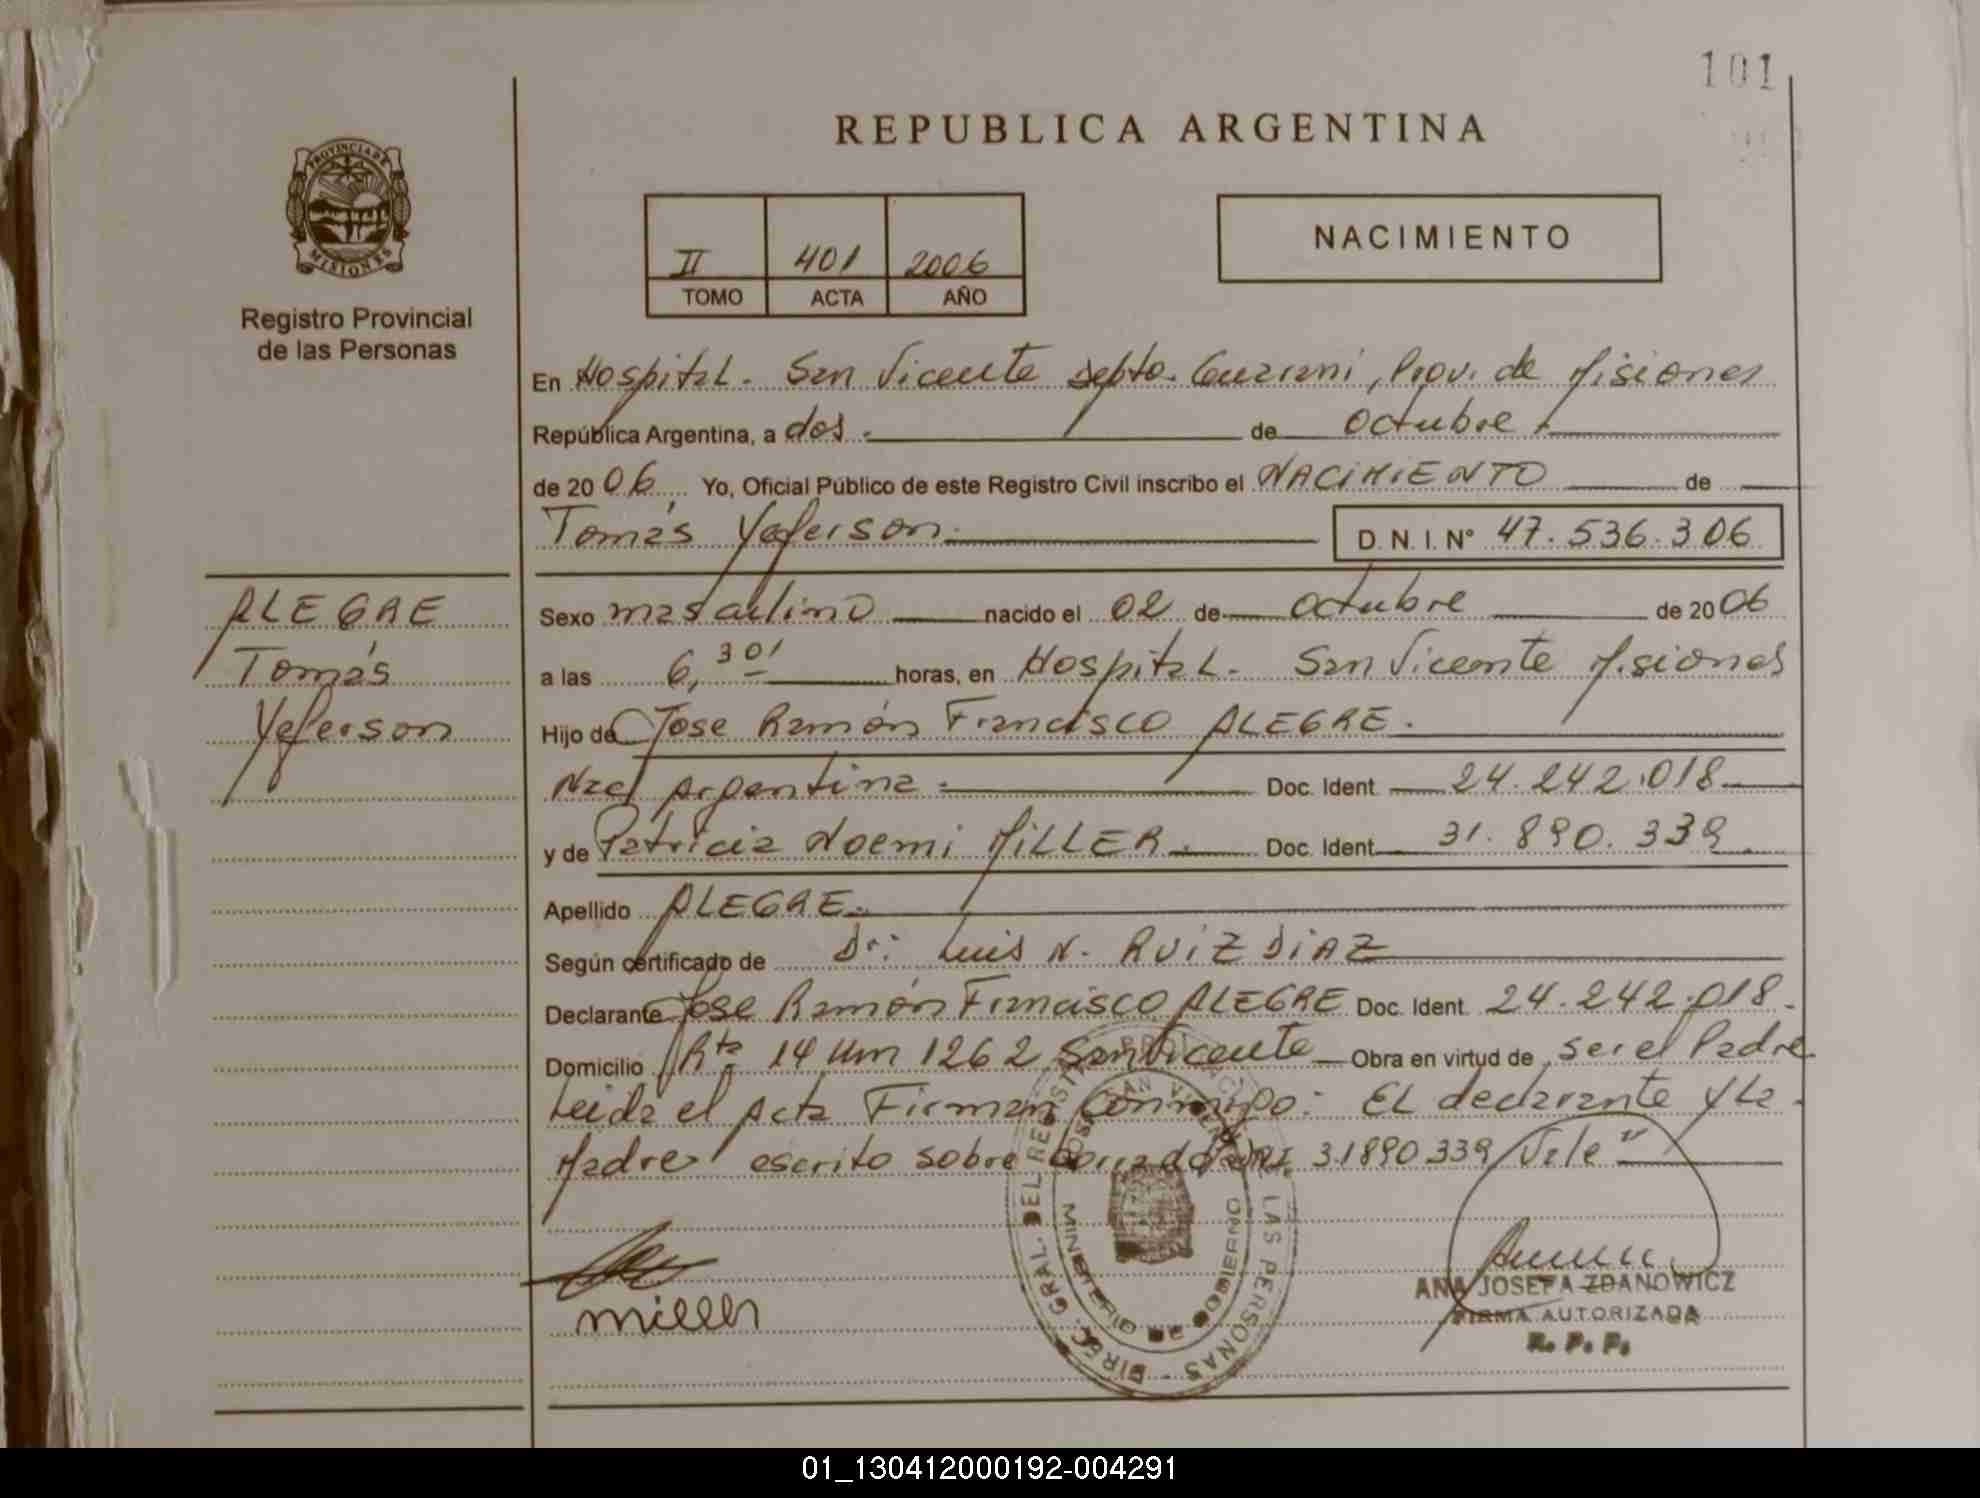 101
REPUBLICA ARGENTINA
PROVINCIA DE
MISIONES
Registro Provincial
de las Personas
II 401 2006
TOMO ACTA AÑO
NACIMIENTO
En Hospital. San Vicente Depto. Guarani, Prov. de Misiones
República Argentina, a dos.- de octubre
de 2006, Yo, Oficial Público de este Registro Civil inscribo el NACIMIENTO de
Tomás Yeferson. D.N.I. Nº 47.536.306
ALEGRE
Tomás
Yeferson
Sexo masculino nacido el 02 de octubre de 2006
a las 6,30' horas, en Hospital. San Vicente Misiones
Hijo de Jose Ramón Francisco ALEGRE.
Nac. Argentina. Doc. Ident. 24.242.018
y de Patricia Noemi MILLER. Doc. Ident. 31.890.339
Apellido ALEGRE.
Según certificado de Dr: Luis N. RUIZ DIAZ
Declarante Jose Ramón Francisco ALEGRE Doc. Ident. 24.242.018.
Domicilio Rta 14 Km 1262 San Vicente Obra en virtud de ser el Padre
Leida el Acta Firman Conmigo: EL declarante y La
Madre escrito sobre borrado DNI 31890339 Vale"
DIREC. GRAL. DEL REGISTRO PROVINCIAL DE LAS PERSONAS
HOSPITAL SAN VICENTE
MINISTERIO DE GOBIERNO
Miller
ANA JOSEFA ZDANOWICZ
FIRMA AUTORIZADA
R. P. P.
01_130412000192-004291